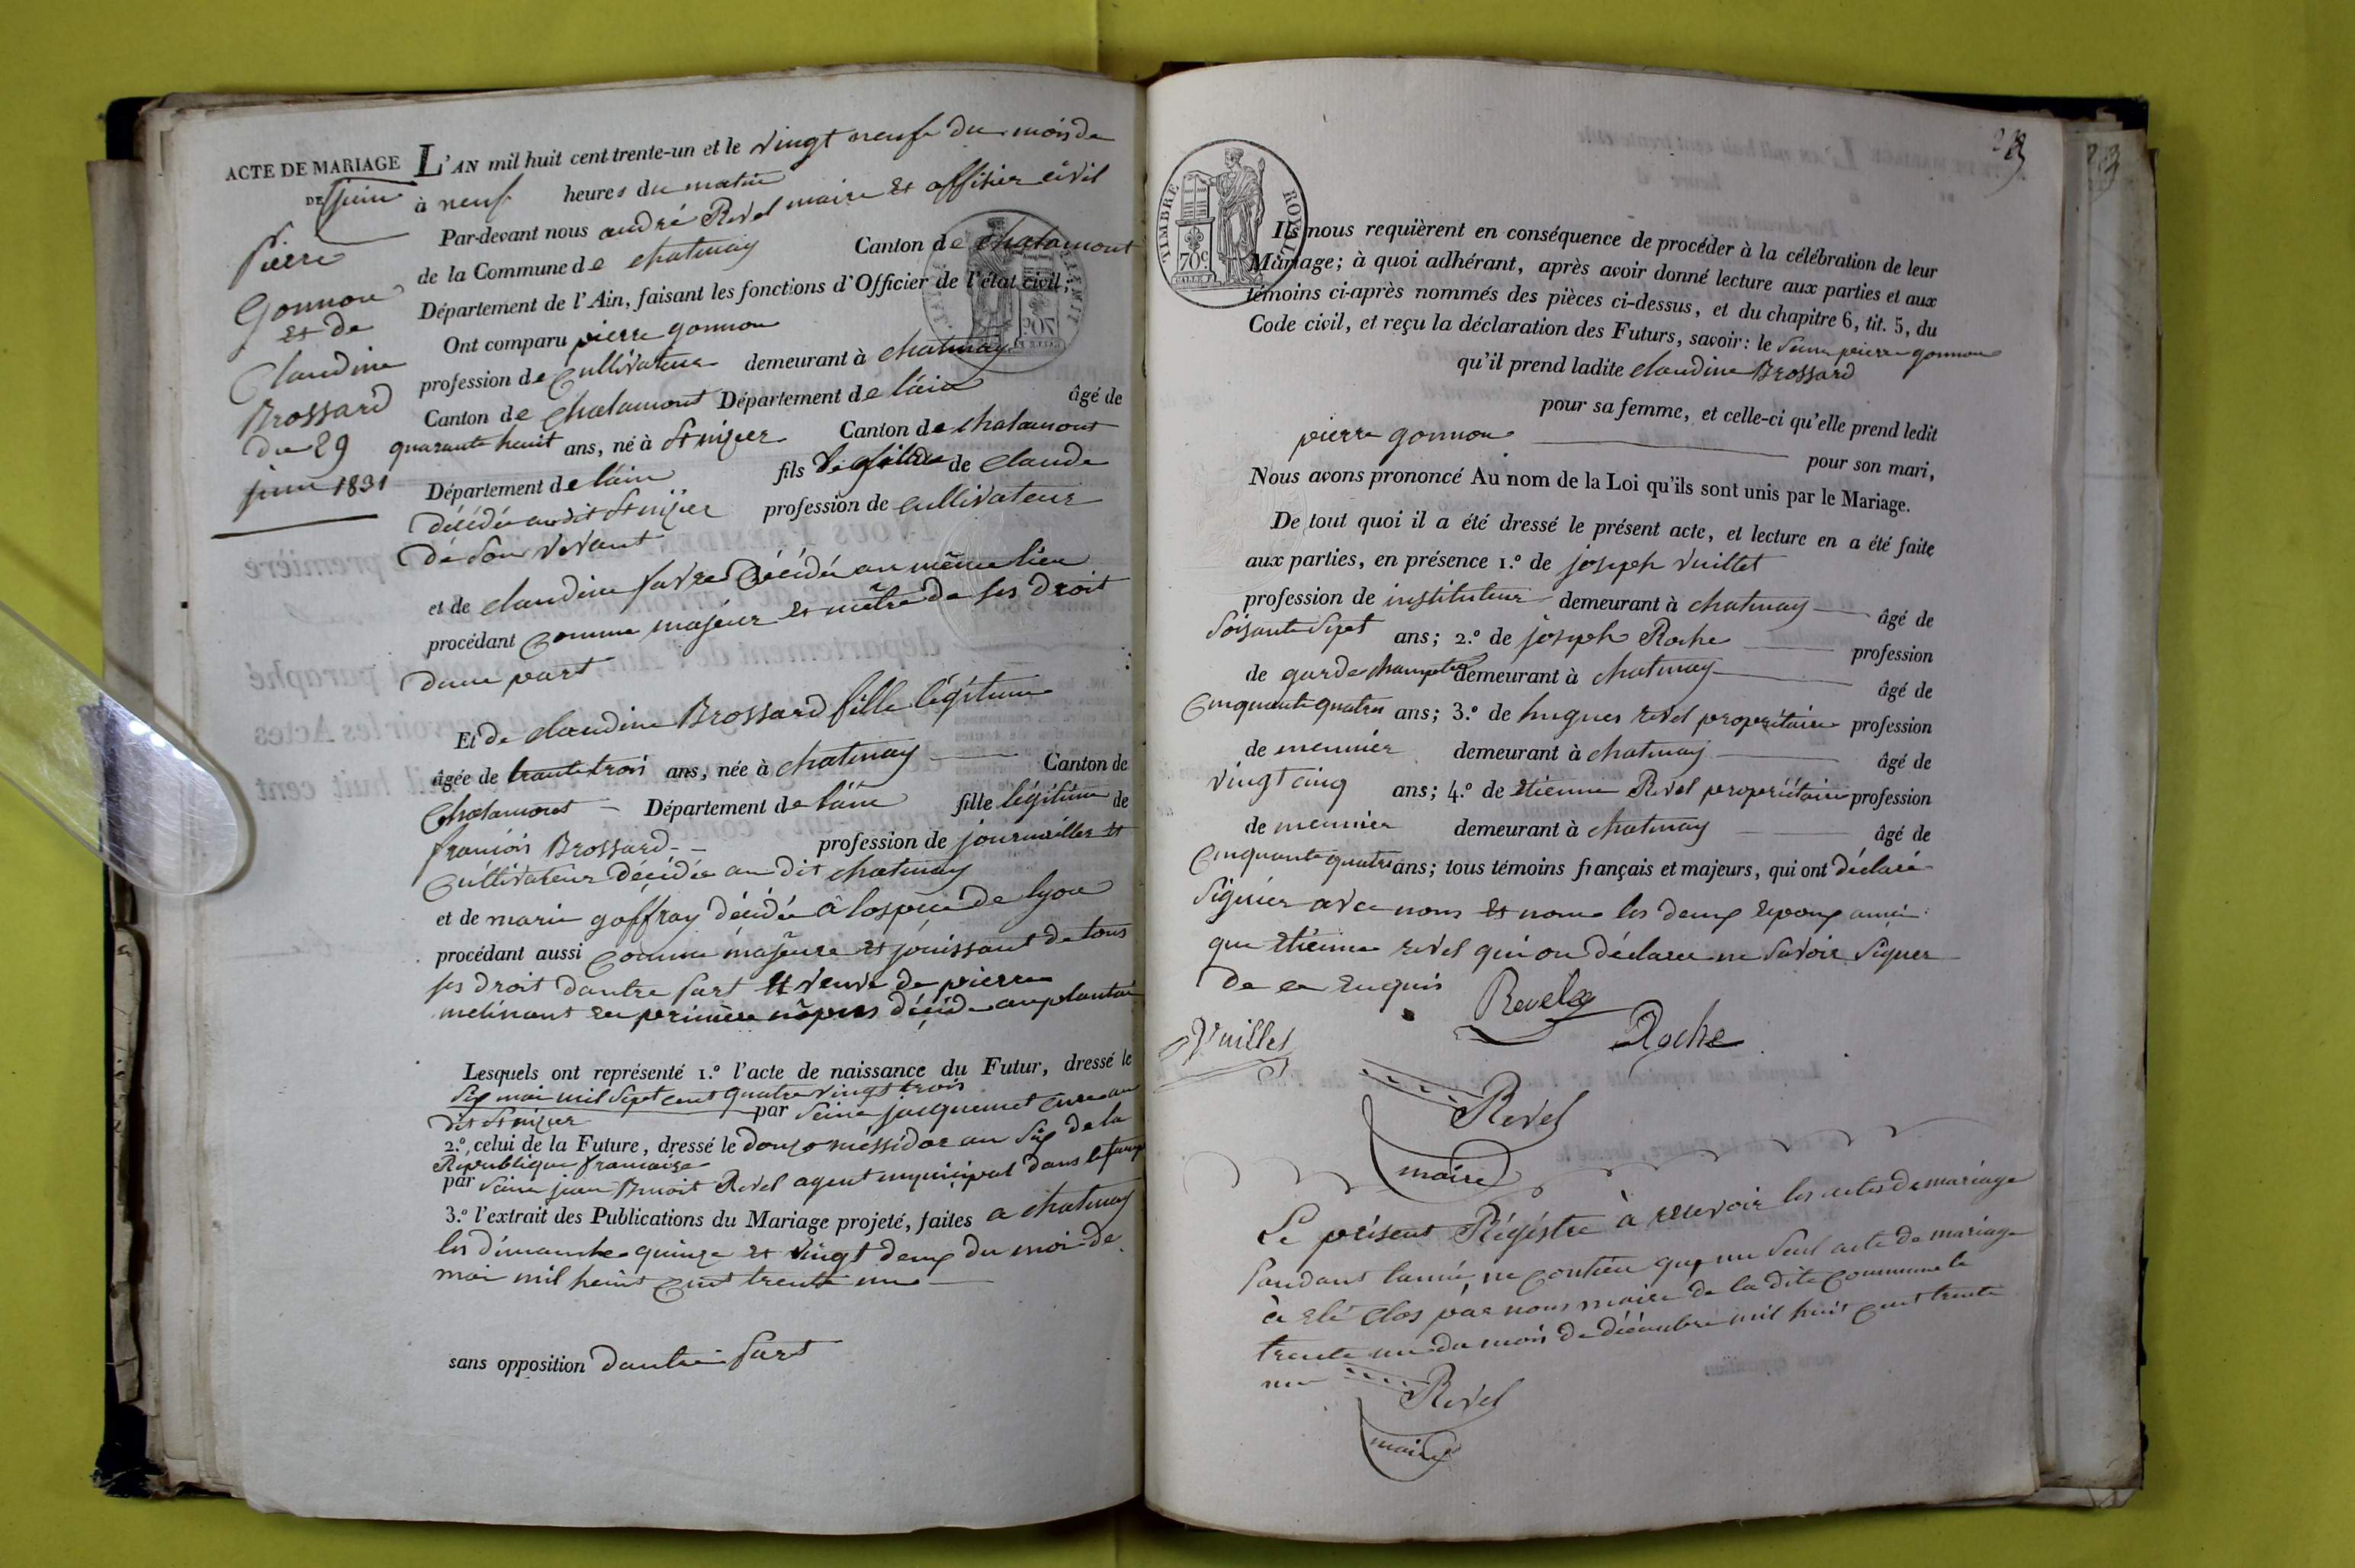 ACTE DE MARIAGE
DE
Pierre
Gonnon
et de
Claudine
Brossard
du 29
juin 1831
L'AN mil huit cent trente-un et le vingt neuf du mois de
juin à neuf heures du matin
Par-devant nous andré Revel maire et offisier civil
de la Commune de chatenay Canton de chalamont
Département de l'Ain, faisant les fonctions d'Officier de l'état civil;
Ont comparu pierre gonnon
profession de Cultivateur demeurant à chatenay
Canton de chalamont Département de láin âgé de
quarante huit ans, né à St nizier Canton de chalamont
Département de láin fils de claude
décédé audit St nizier profession de cultivateur
de son vivant
et de claudine favre décédée au même lieu
procédant Comme majeur et mêtre de ses droit
dune part
Et de claudine Brossard fille légitime
âgée de trante trois ans, née à chatenay Canton de
Chalamont Département de láin fille légitime de
francois Brossard profession de journaillier et
Cultivateur décédée au dit chatenay
et de marie goffray décédée à lospice de lyon
procédant aussi Comme majeure et jouissant de tous
ses droit dautre part et veuve de pierre
melinant en première décédé au plantai
Lesquels ont représenté 1.º l'acte de naissance du Futur, dressé le
Six mai mil Sept cent quatre vingt trois
dit St nizier par Seine jacquemet Cure au
2.º celui de la Future, dressé le douze méssidor an Six de la
République francaise
par Seine jean Benoit Revel agent municipal dans le tamp
3.º l'extrait des Publications du Mariage projeté, faites a chatenay
les dimanche quinze et vingt deux du moi de
mai mil heuit Cent trente un
sans opposition dautre part
23
TIMBRE ROYAL
70c
Ils nous requièrent en conséquence de procéder à la célébration de leur
Mariage; à quoi adhérant, après avoir donné lecture aux parties et aux
témoins ci-après nommés des pièces ci-dessus, et du chapitre 6, tit. 5, du
Code civil, et reçu la déclaration des Futurs, savoir: le pierre gonnon
qu'il prend ladite claudine Brossard
pour sa femme, et celle-ci qu'elle prend ledit
pierre gonnon pour son mari,
Nous avons prononcé Au nom de la Loi qu'ils sont unis par le Mariage.
De tout quoi il a été dressé le présent acte, et lecture en a été faite
aux parties, en présence 1.º de joseph Vuillet
profession de instituteur demeurant à chatenay âgé de
Soisante Sept ans; 2.º de joseph Roche profession
de garde champetre demeurant à chatenay âgé de
Cinquante quatre ans; 3.º de hugues revel propriétaire profession
de meunier demeurant à chatenay âgé de
Vingt cinq ans; 4.º de Etienne Revel propriétaire profession
de meunier demeurant à chatenay âgé de
Cinquante quatre ans; tous témoins français et majeurs, qui ont déclaré
Signier avec nous et nom les deux Epoux ainci
que Etienne revel qui on déclaree ne Savoir Signer
de ce Enquis
Revel
Vuillet
Roche
Revel
maire
Le présent Régistre à recevoir les actes de mariage
pandant lannée, ne contien que un Seul acte de mariage
à eté Clos par nous maire de la dite Commune le
trente un du mois de décembre mil huit cent trente
un
Revel
maire